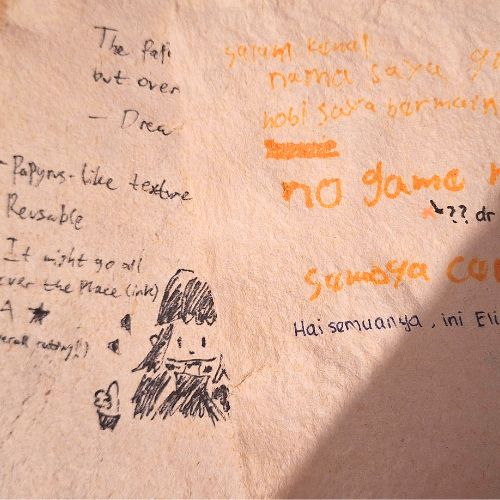 The
but over
- Drea
- Papyrus-like texture
Reusable
It might go all
over the place (ink)
A ★
salam kenal
nama saya
hobi saya bermain
no game n
?? dr
semoga
Hai semuanya, ini Eli